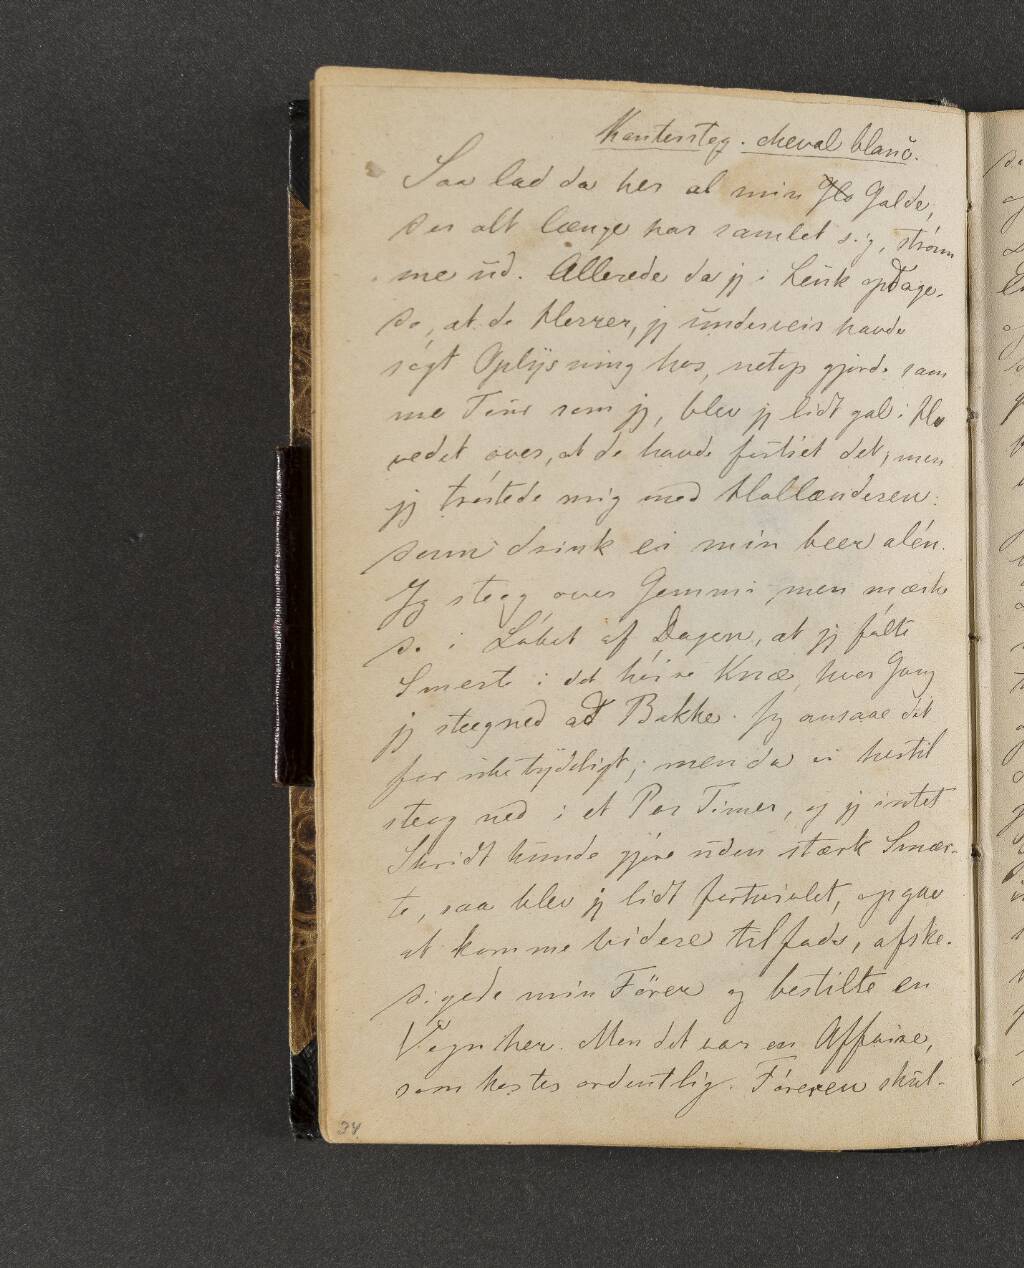 Kandersteg. cheval blanc.
Saa lad da her al min Gla Galde,
der alt længe har samlet sig, strøm
me ud. Allerede da jg i Leuk opdage-
de, at de Herrer, jg underveis havde
søgt Oplysning hos, netop gjorde sam
me Tour som jg, blev jg lidt gal i Ho
vedet over, at de havde fortiet det; men
jg trøstede mig med Hollænderen:
drink ei min beer alén.
Jg steg over Gemmi, men mærke
de i Løbet af Dagen, at jg følte
Smerte i det høire Knæ, hver Gang
jg steg ned ad Bakke. Jg ansaae det
for ubetydeligt; men da vi hertil
steeg ned i et Par Timer, og jg intet
Skridt kunde gjøre uden stærk Smær-
te, saa blev jg lidt fortvivlet, opgav
at komme videre tilfods, afske-
digede min Fører og bestilte en
Vogn her. Men det var en Affaire,
som koster ordentlig. Føreren skul-
34